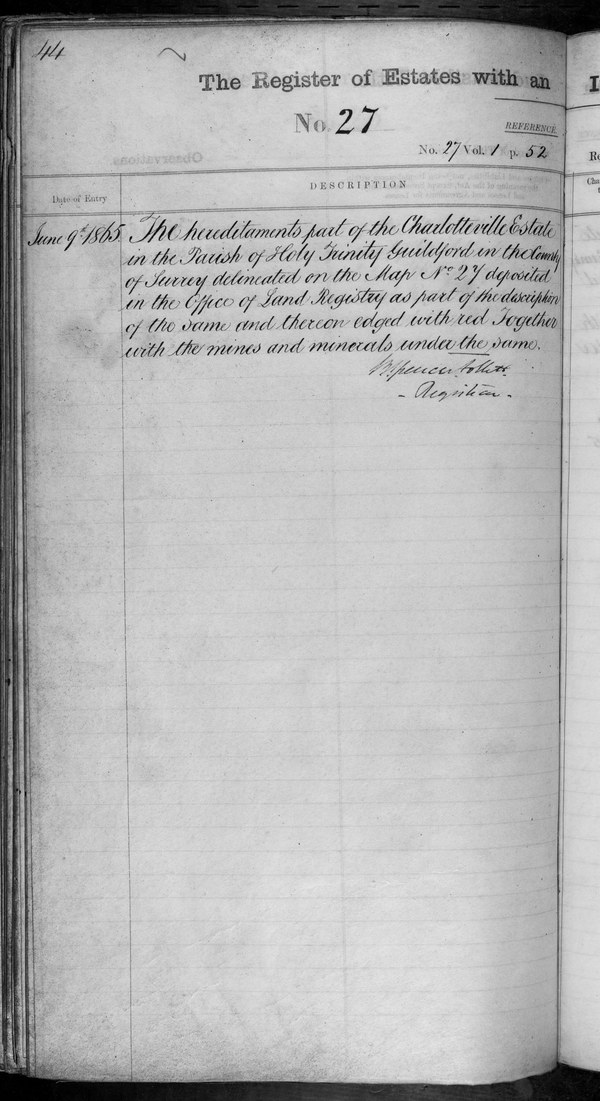 44
The Register of Estates with an
No. 27
REFERENCE.
No. 27 Vol. 1 p. 52
Date of Entry
DESCRIPTION
June 9th 1865
The hereditaments part of the Charlotteville Estate
in the Parish of Holy Trinity Guildford in the County
of Surrey delineated on the Map No. 27 deposited
in the Office of Land Registry as part of the discription
of the same and thereon edged with red Together
with the mines and minerals under the same.
Spencer Follett
- Registrar -